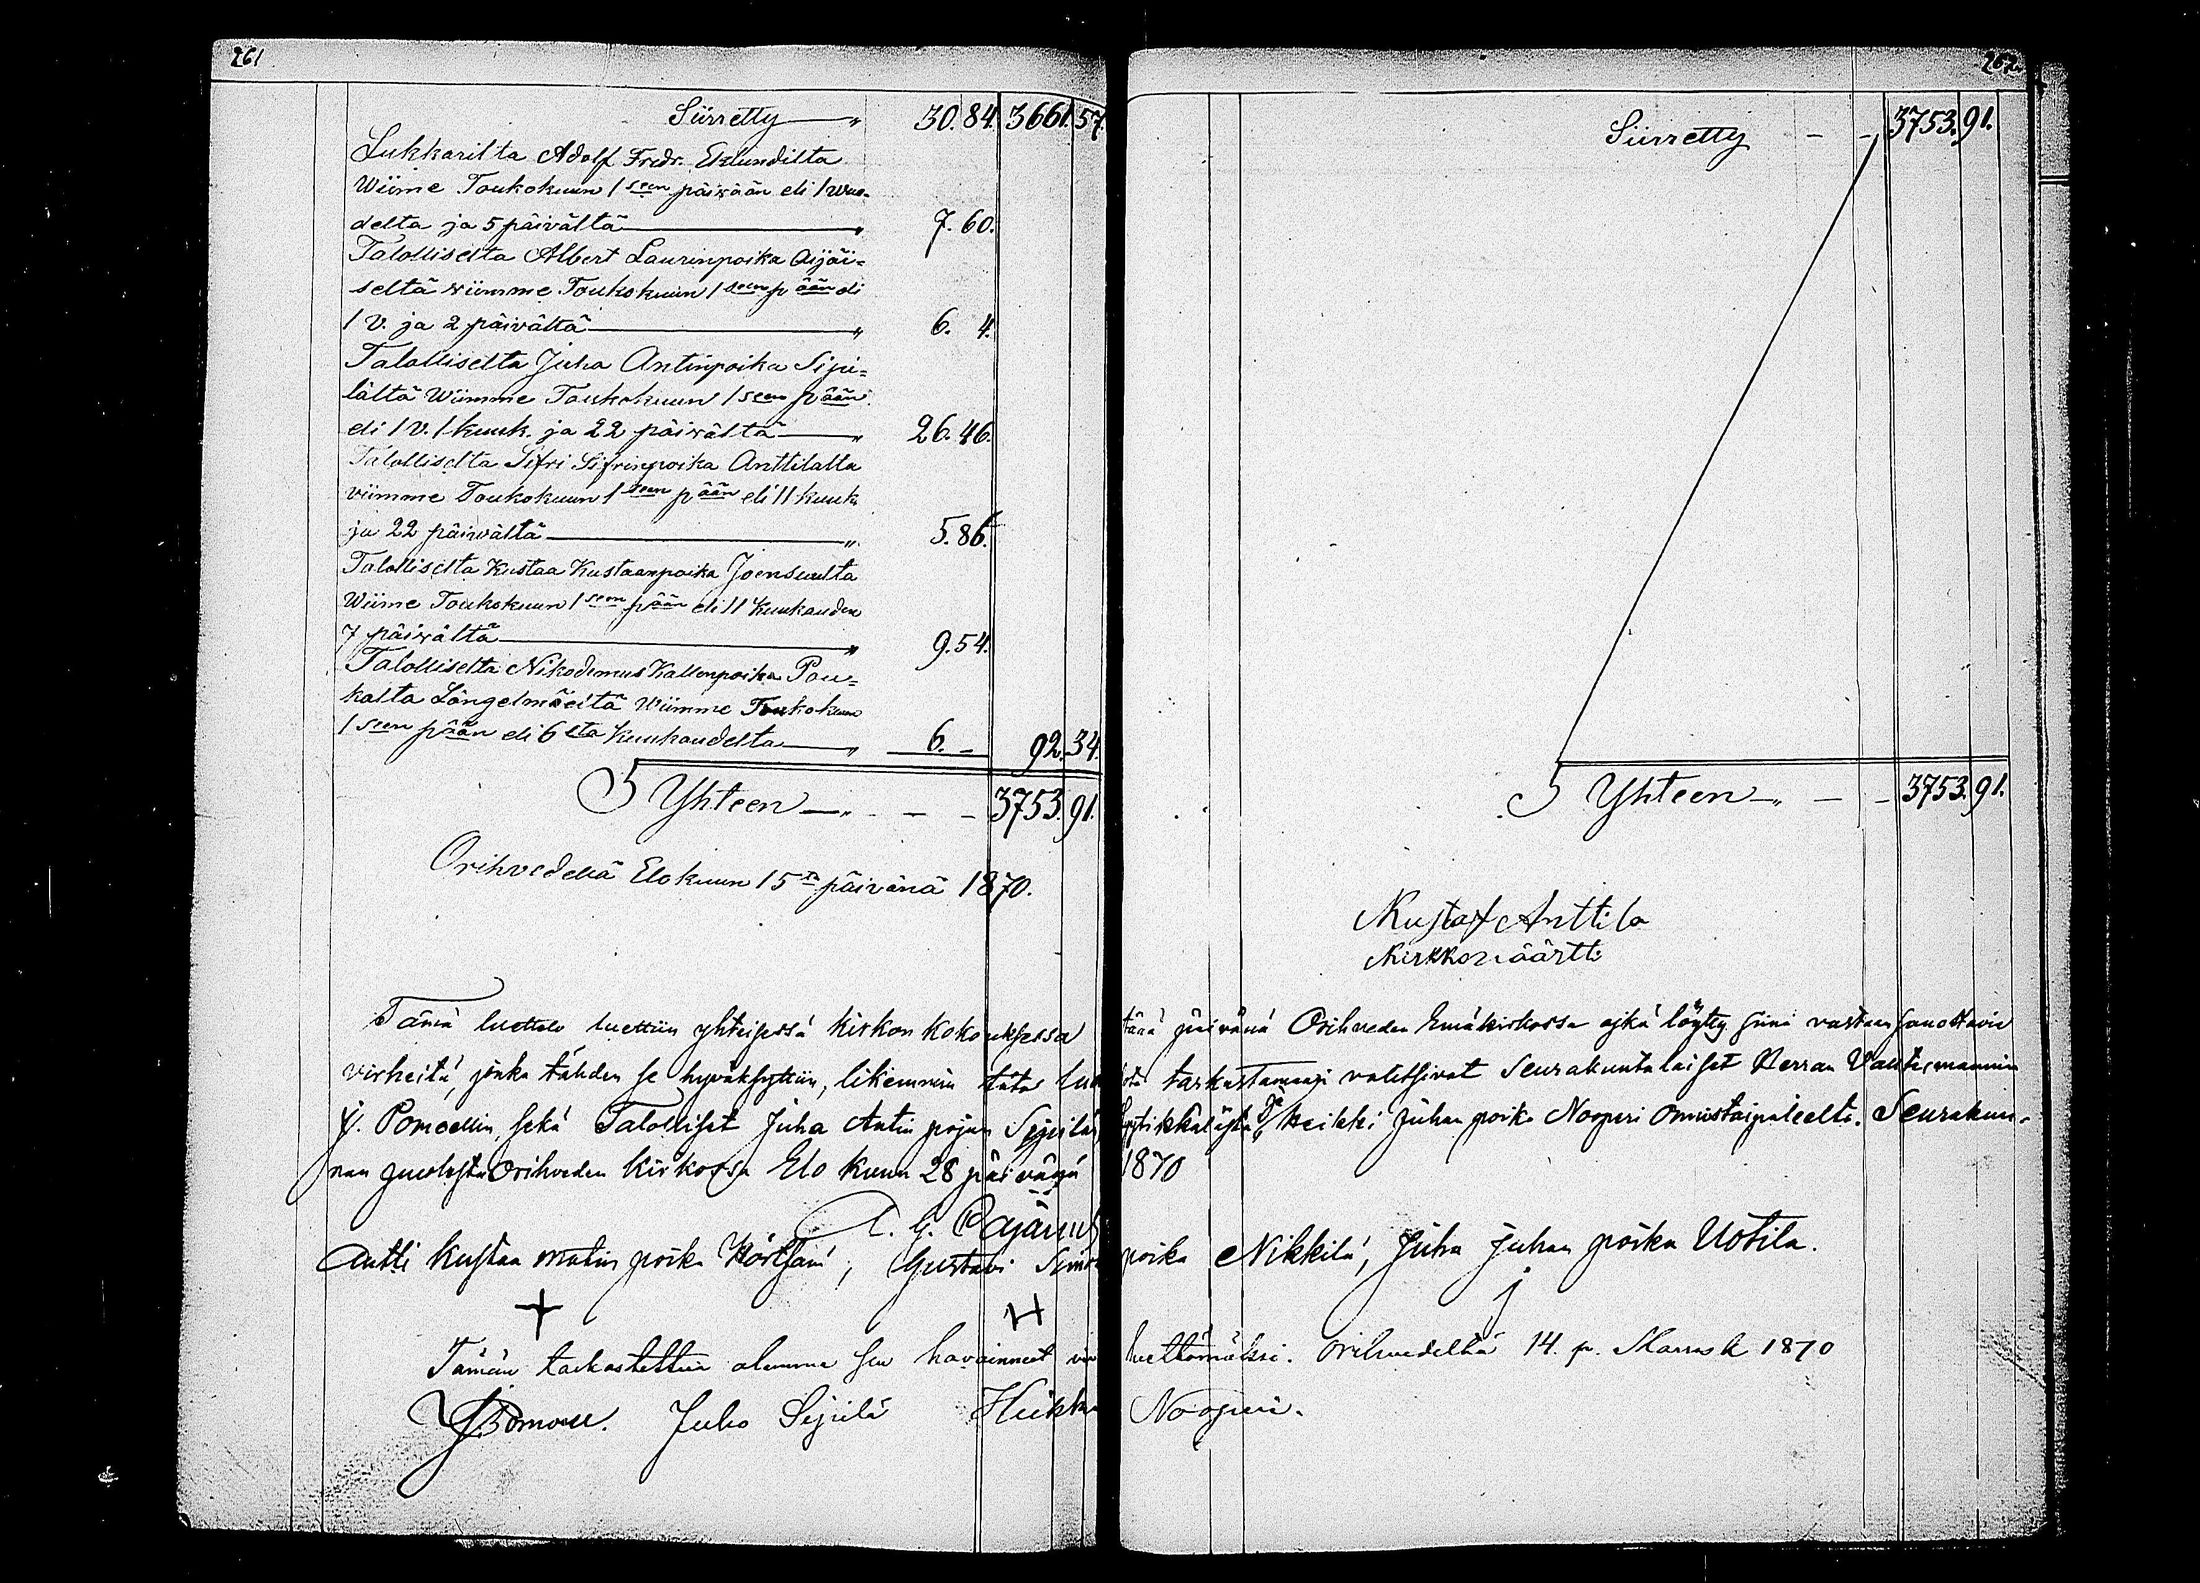 261
Siirretty — " 30. 84. 3661. 57.
Lukkarilta Adolf Fredr. Eklundilta
Wiime Toukokuun 1 seen päivään eli 1 wuo-
delta ja 5 päivältä — " 7. 60.
Talolliselta Albert Laurinpoika Äijäi=
seltä wiimme Toukokuun 1 seen p ään eli
1 V. ja 2 päivältä — " 6. 4.
Talolliselta Juha Antinpoika Sipi=
lältä Wiimme Toukokuun 1 seen p ään
eli 1 V. 1 kuuk. ja 22 päivältä — " 26. 46.
Talolliselta Sifri Sifrinpoika Anttilalta
viimme Toukokuun 1 seen p ään eli 11 kuuk
ja 22 päivältä — " 5. 86.
Talolliselta Kustaa Kustaanpoika Joensuulta
Wiime Toukokuun 1 seen pään eli 11 Kuukauden
7 päivältä — " 9. 54.
Talolliselta Nikodemus Kallenpoika Pou=
kalta Längelmäeltä Wiimme Toukokuun
1 seen pään eli 6 lta Kuukaudelta — " 6. - 92. 34.
Yhteen — " - - - 3753. 91.
Orihvedellä Elokuun 15 ta päivänä 1870.
262
Siirretty - - 3753. 91.
Yhteen — " - - 3753. 91.
Kustaf Anttila
Kirkkoväärtti
Tämä luettelo luettiin yhteisessä kirkon kokouksessa tänä päivänä Orihveden Emäkirkossa eikä löytty siinä vastaan sanottavia
virheitä, jonka tähden se hyväksyttiin, likemmin tätä tarkastamaan valitsivat Seurakuntalaiset Herran
J. Pomoellin, sekä Talolliset Juha Antin pojan Sipilän ja Heikki Juhan poika Nooperi Onnistaipaleelta. Seurakun-
nan puolesta Orihveden Kirkossa Elo kuun 28 päivänä 1870
A. G. Rajander
Antti Kustaa Matin poika Körtsäni, Gustavi poika Nikkilä, Juha Juhan poika Uotila.
Tämän tarkastettua olemme sen havainneet virheettömäksi. Orihvedellä 14. p. Marrask 1870
J. Pomoell. Juho Sipilä Heikki Nooperi.